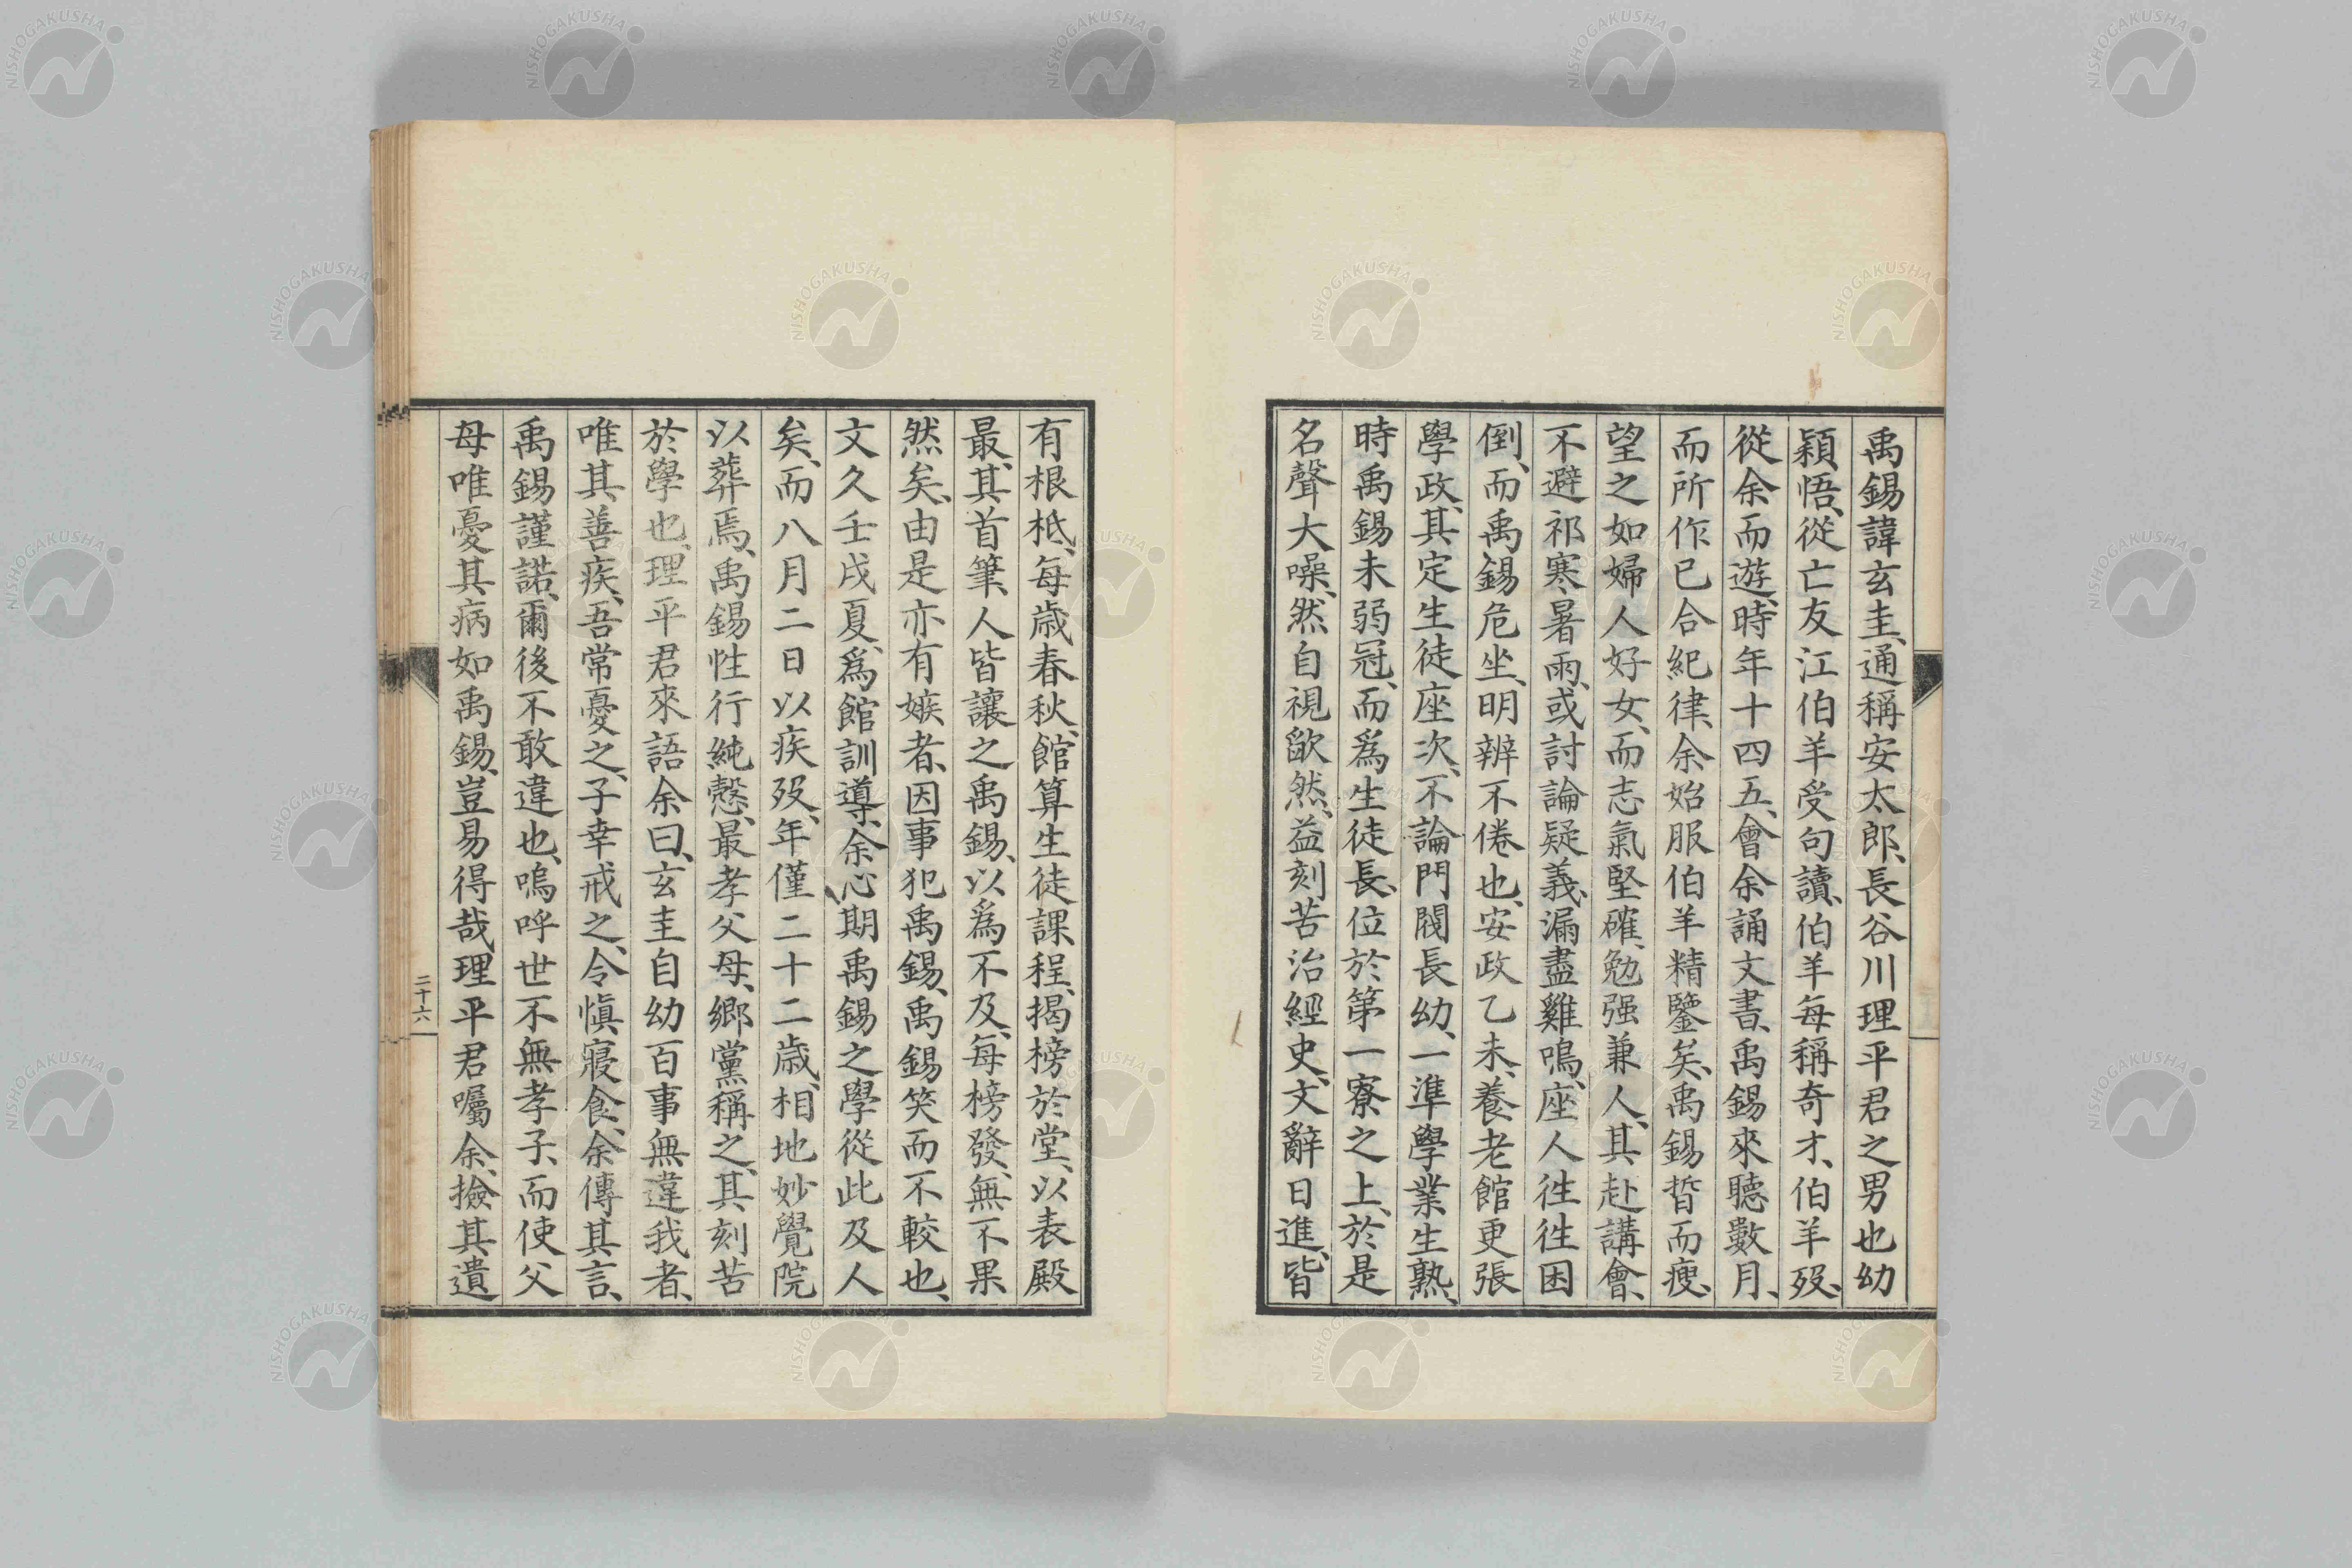 禹錫諱玄圭、通稱安太郎、長谷川理平君之男也幼
穎悟、從亡友江伯羊受句讀、伯羊每稱奇才、伯羊歿、
從余而遊、時年十四五、會余誦文書、禹錫來聽數月、
而所作已合紀律、余始服伯羊精鑒矣、禹錫晳而瘦、
望之如婦人好女、而志氣堅確、勉强兼人、其赴講會、
不避祁寒暑雨、或討論疑義、漏盡雞鳴、座人往往困
倒、而禹錫危坐、明辨不倦也、安政乙未、養老館更張
學政、其定生徒座次、不論門閥長幼、一準學業生熟、
時禹錫未弱冠、而爲生徒長、位於第一寮之上、於是
名聲大噪、然自視歃然、益刻苦治經史、文辭日進、皆
有根柢、每歲春秋、館算生徒課程、揭榜於堂、以表殿
最、其首筆人皆讓之禹錫、以爲不及、每榜發、無不果
然矣、由是亦有嫉者、因事犯禹錫、禹錫笑而不較也、
文久壬戌夏、爲館訓導、余心期禹錫之學從此及人
矣、而八月二日以疾歿、年僅二十二歲、相地妙覺院
以葬焉、禹錫性行純慤、最孝父母、鄉黨稱之、其刻苦
於學也、理平君來語余曰、玄圭自幼百事無違我者、
唯其善疾、吾常憂之、子幸戒之、令愼寢食、余傳其言、
禹錫謹諾、爾後不敢違也、嗚呼世不無孝子、而使父
母唯憂其病如禹錫、豈易得哉、理平君囑余、撿其遺
二十六